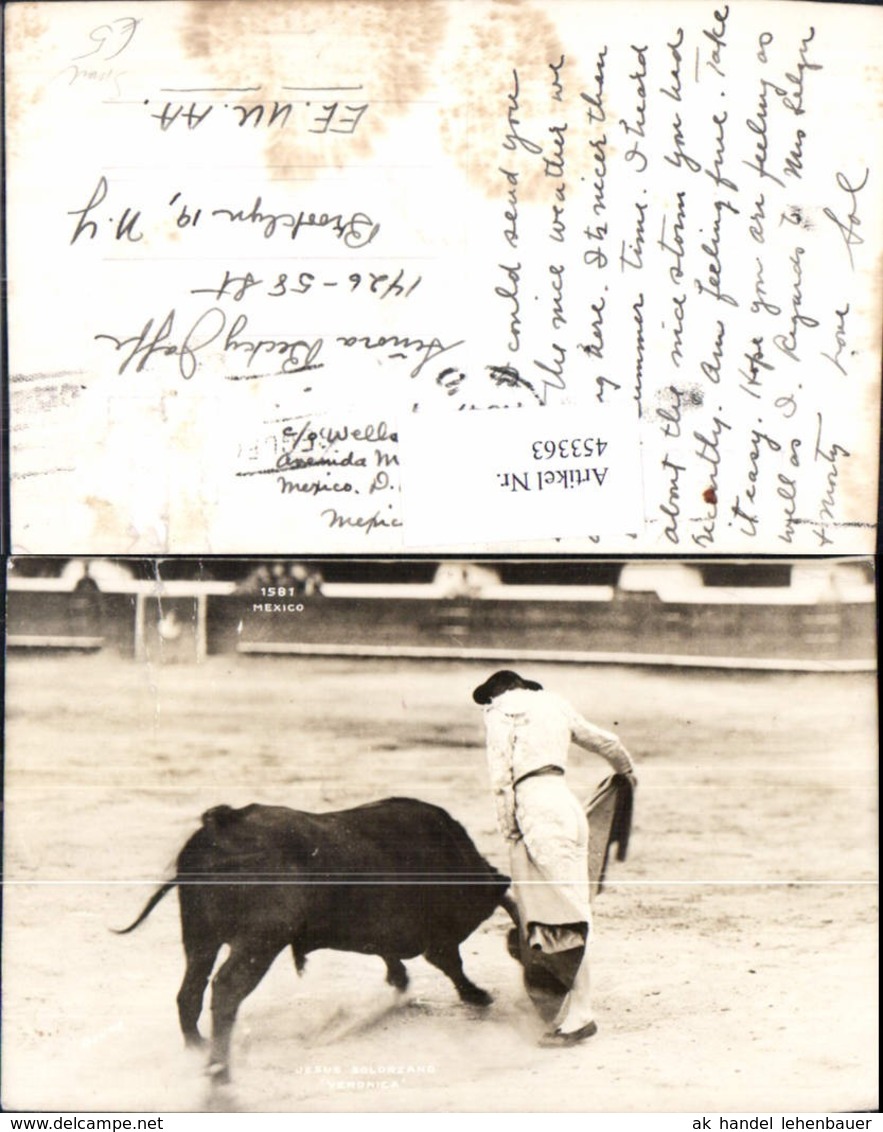 could send you
this nice weather we
here. Its nicer than
summer time. I heard
about the nice storm you had
recently. Am feeling fine. Take
it easy. Hope you are feeling as
well as I. Regards to Mrs
+ Morty
Love
Sol
Señora Becky Jaffe
1426-58 St
Brooklyn 19, N.Y
EE. UU. AA.
Wells
Avenida M
Mexico. D.
Artikel Nr.
453363
1581
MEXICO
JESUS SOLORZANO
"VERONICA"
ak handel lehenbauer